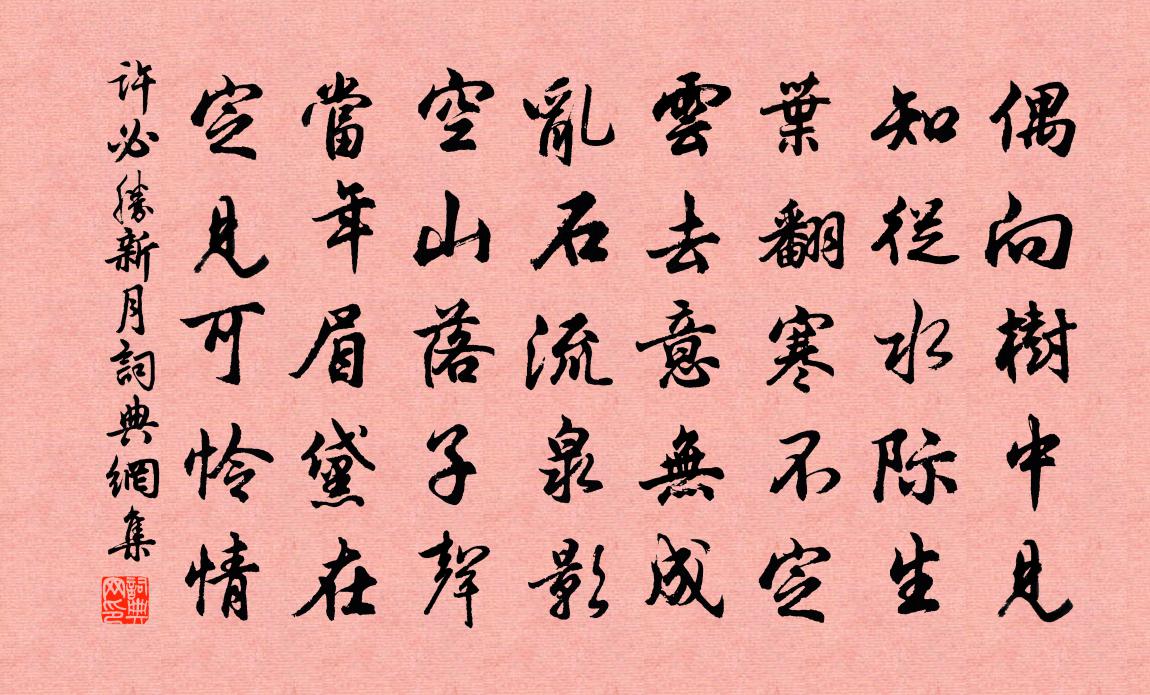 偶向樹中見
知從水际生
葉翻寒不定
雲去意無成
亂石流泉影
空山落子聲
當年眉黛在
定見可怜情
許必勝新月詞典網集
詞典网印